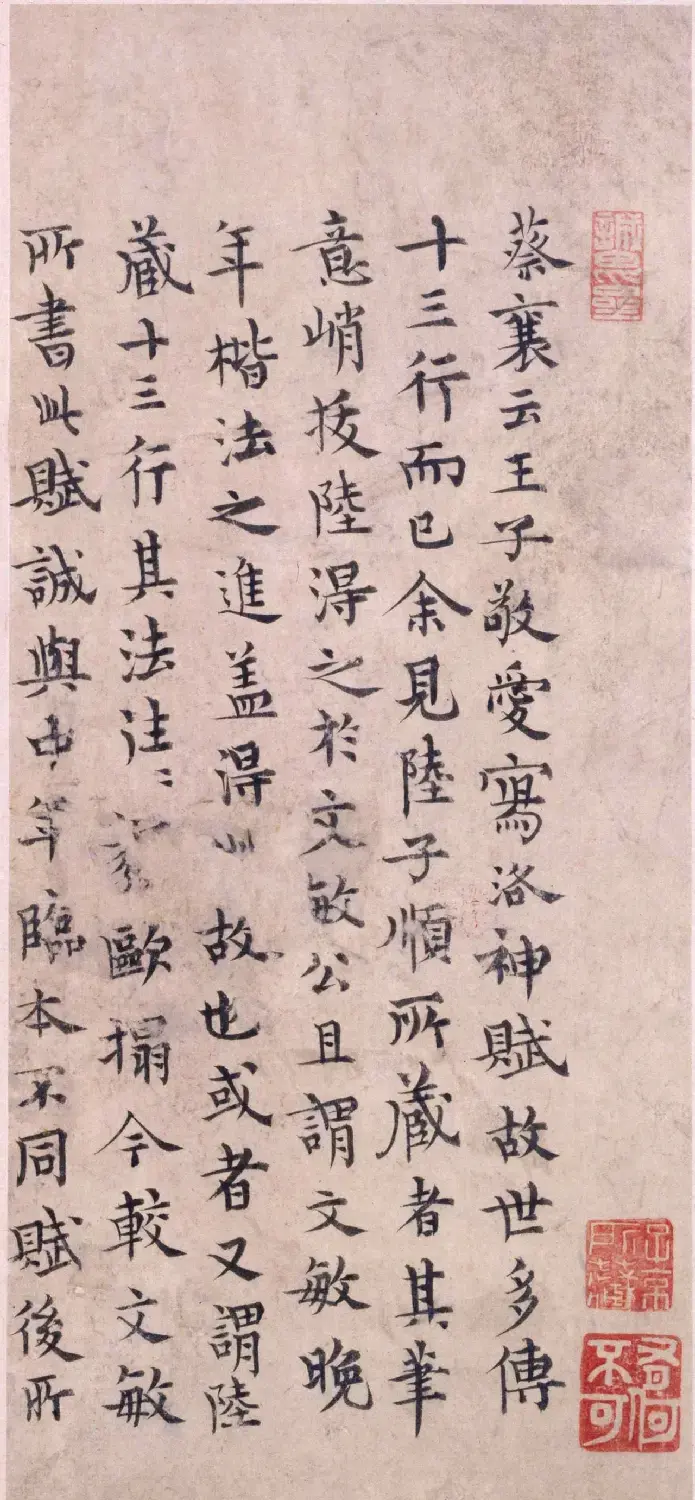 蔡襄云王子敬愛寫洛神賦故世多傳
十三行而已余見陸子順所藏者其筆
意峭拔陸得之於文敏公且謂文敏晚
年楷法之進盖得此故也或者又謂陸
藏十三行其法往〻歐搨今較文敏
所書此賦誠與中年臨本不同賦後所